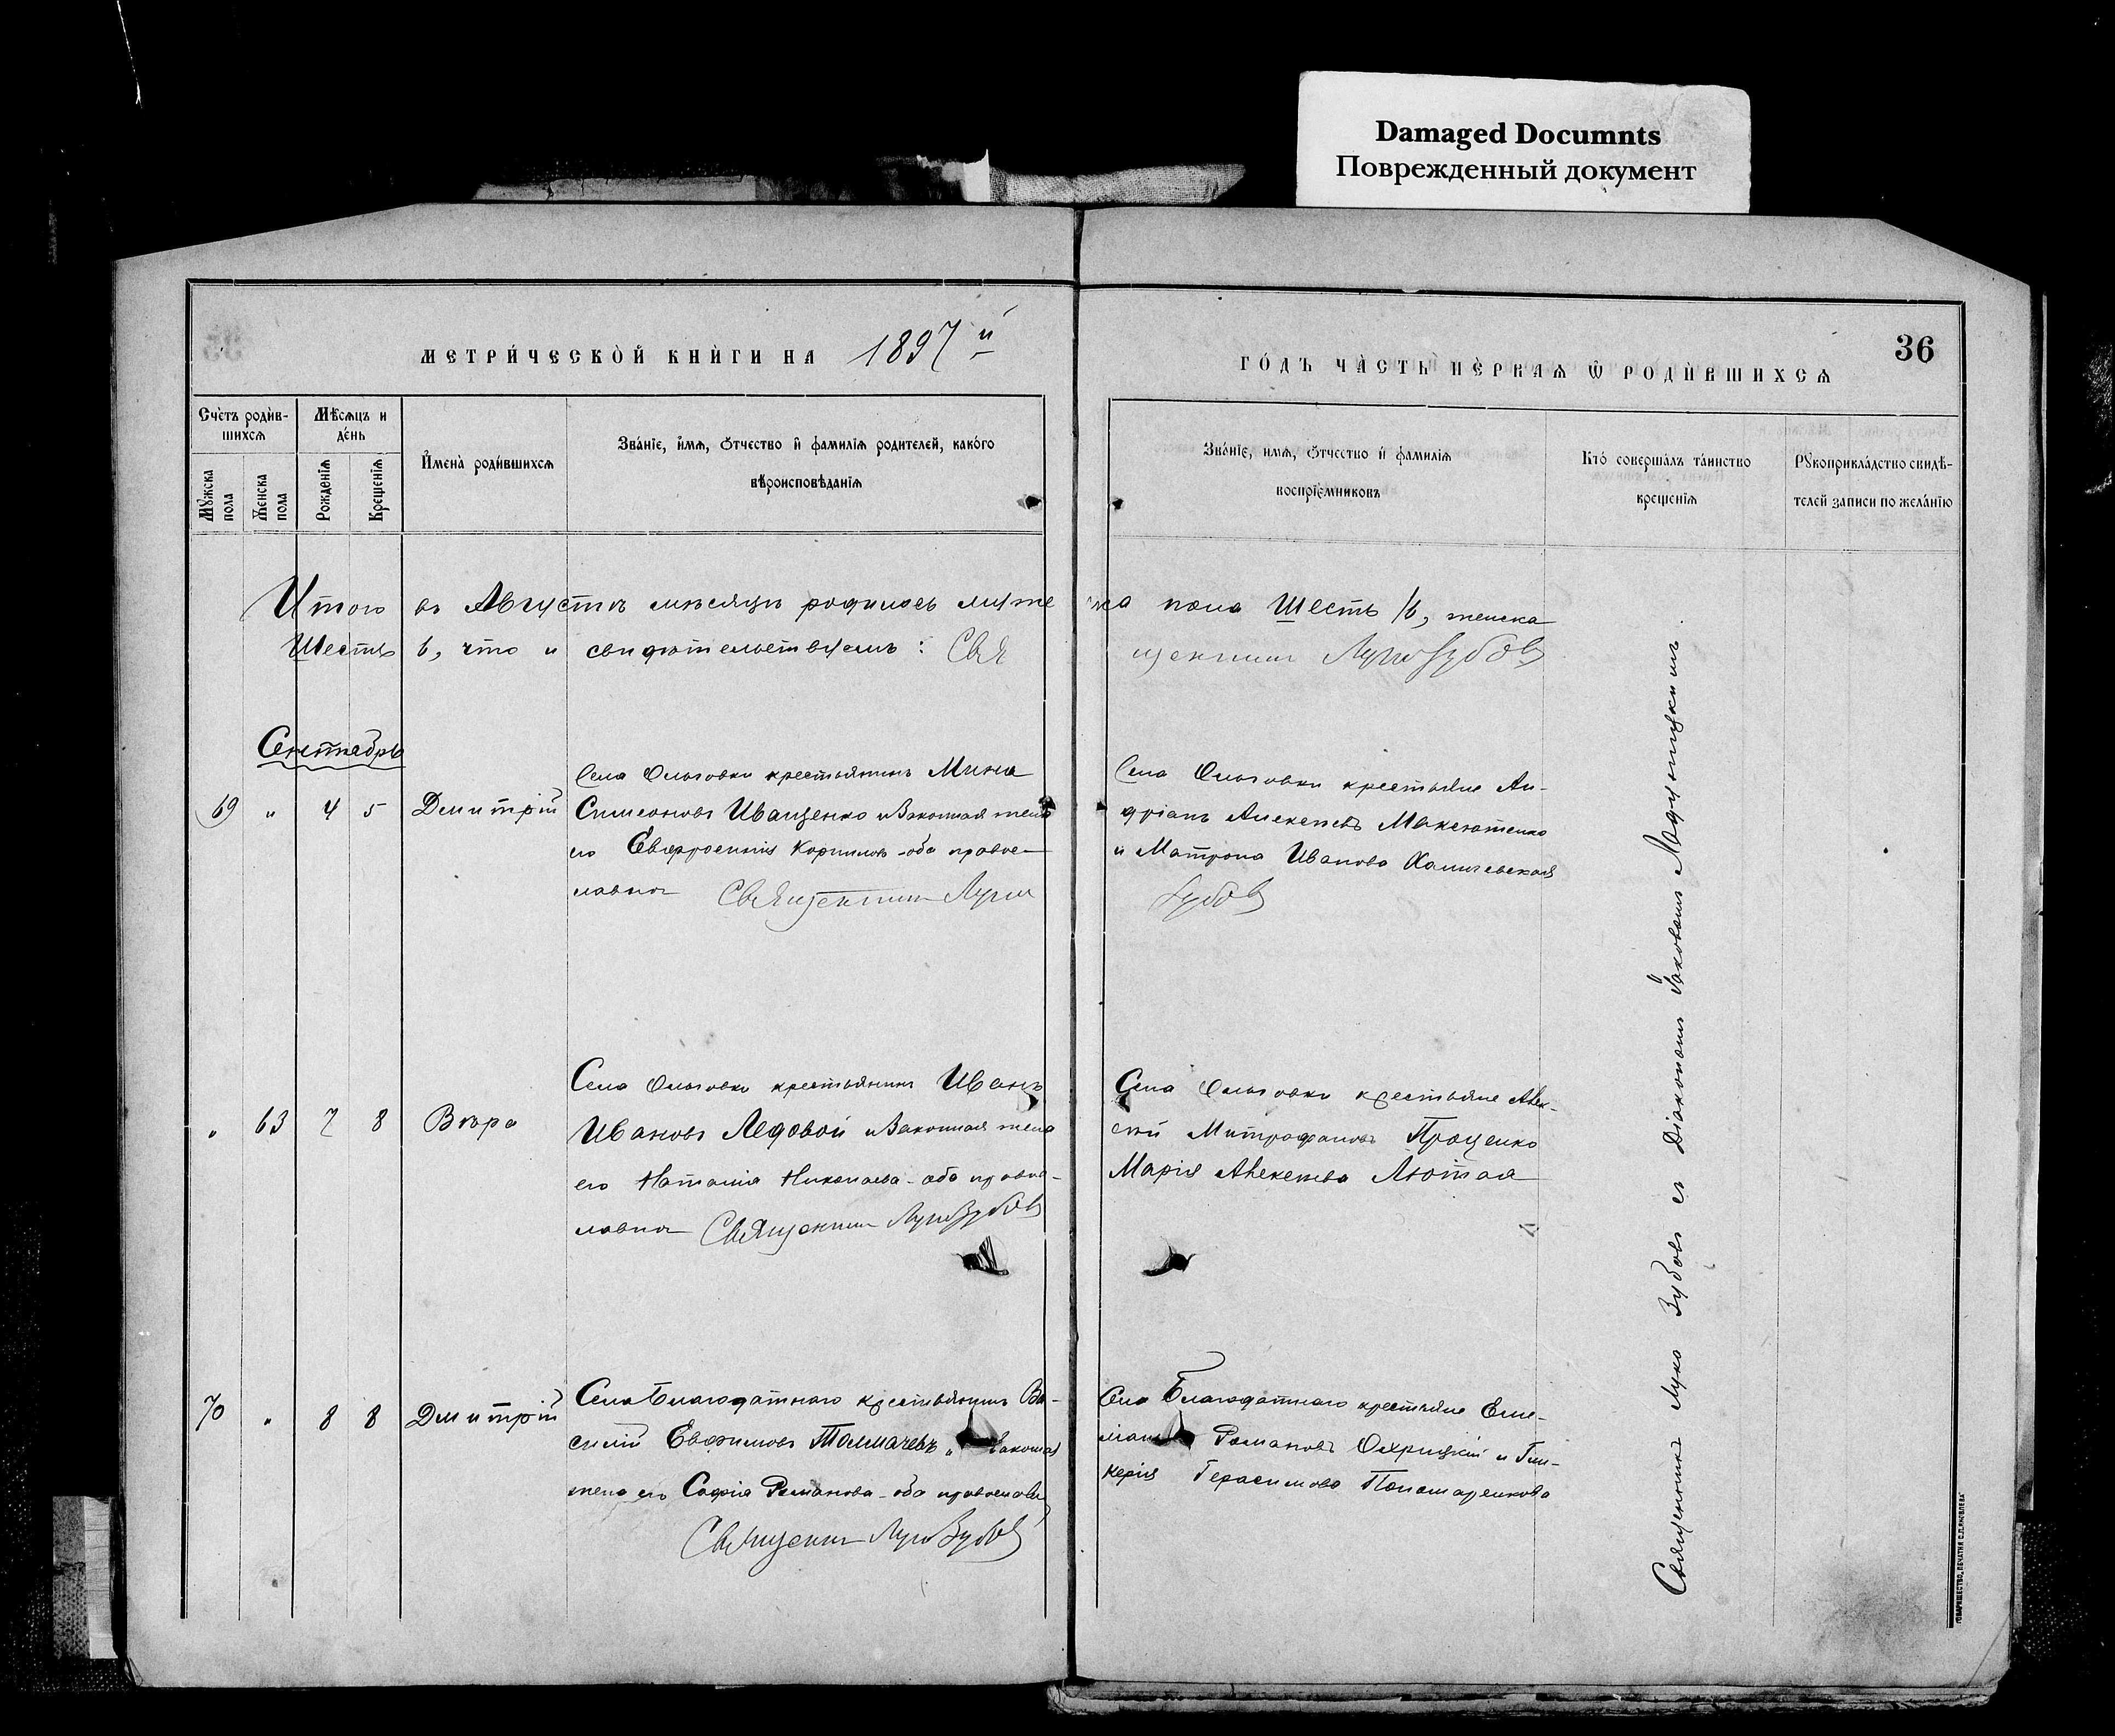 Damaged Documnts
Поврежденный документ
МЕТРИ́ЧЕСКОЙ КНИ́ГИ НА 1897й
ГО́ДЪ ЧА́СТЬ ПЕ́РВАѦ Ѡ РОДИ́ВШИХСѦ
36
Счётъ роди́в-
шихсѧ
Мѣ́сѧцъ и
де́нь
Мꙋжска
пола
Женска
пола
Рожденїѧ
Крещенїѧ
Имена̀ роди́вшихсѧ
Зва́нїе, и́мѧ, ѻтчество и фамилїѧ родителей, како́го
вѣроисповѣданїѧ
Зва́нїе, имѧ, ѻтчество и фамилїѧ
воспрїемниковъ
Кто́ соверша́лъ та́инство
крещенїѧ
Рꙋкоприкла́дство свидѣ-
телей записи по жела́нїю
Итого въ Августѣ мѣсяцѣ родилось муже
ска пола Шесть /6, женска
Шесть 6, что и свидѣтельствуемъ: Свя
щенникъ Лука Зубовъ
Сентябрь
69 " 4 5 Дмитрій
Села Ольговки крестьянинъ Мина
Симеоновъ Иващенко и законная жена
его Евфросинія Корнилова - оба право
славные Священникъ Лука
Села Ольговки крестьяне Ан-
дріанъ Алексѣевъ
и Матрона Иванова
Зубовъ
" 63 7 8 Вѣра
Села Ольговки крестьянинъ Иванъ
Ивановъ Ледовой и законная жена
его Наталія Николаева - оба право-
славные Священникъ Лука Зубовъ
Села Ольговки крестьяне Алек-
сѣй Митрофановъ Проценко
Марія Алексѣева Лютая
70 " 8 8 Дмитрій
Села Благодатнаго крестьянинъ Ва-
силій Евфимовъ Толмачевъ и законная
жена его Софія Романова - оба православн
Священникъ Лука Зубовъ
Села Благодатнаго крестьяне Еме-
Романовъ и Гли-
керія Герасимова Пономаренкова
Священникъ Лука Зубовъ съ Діакономъ Іаковомъ